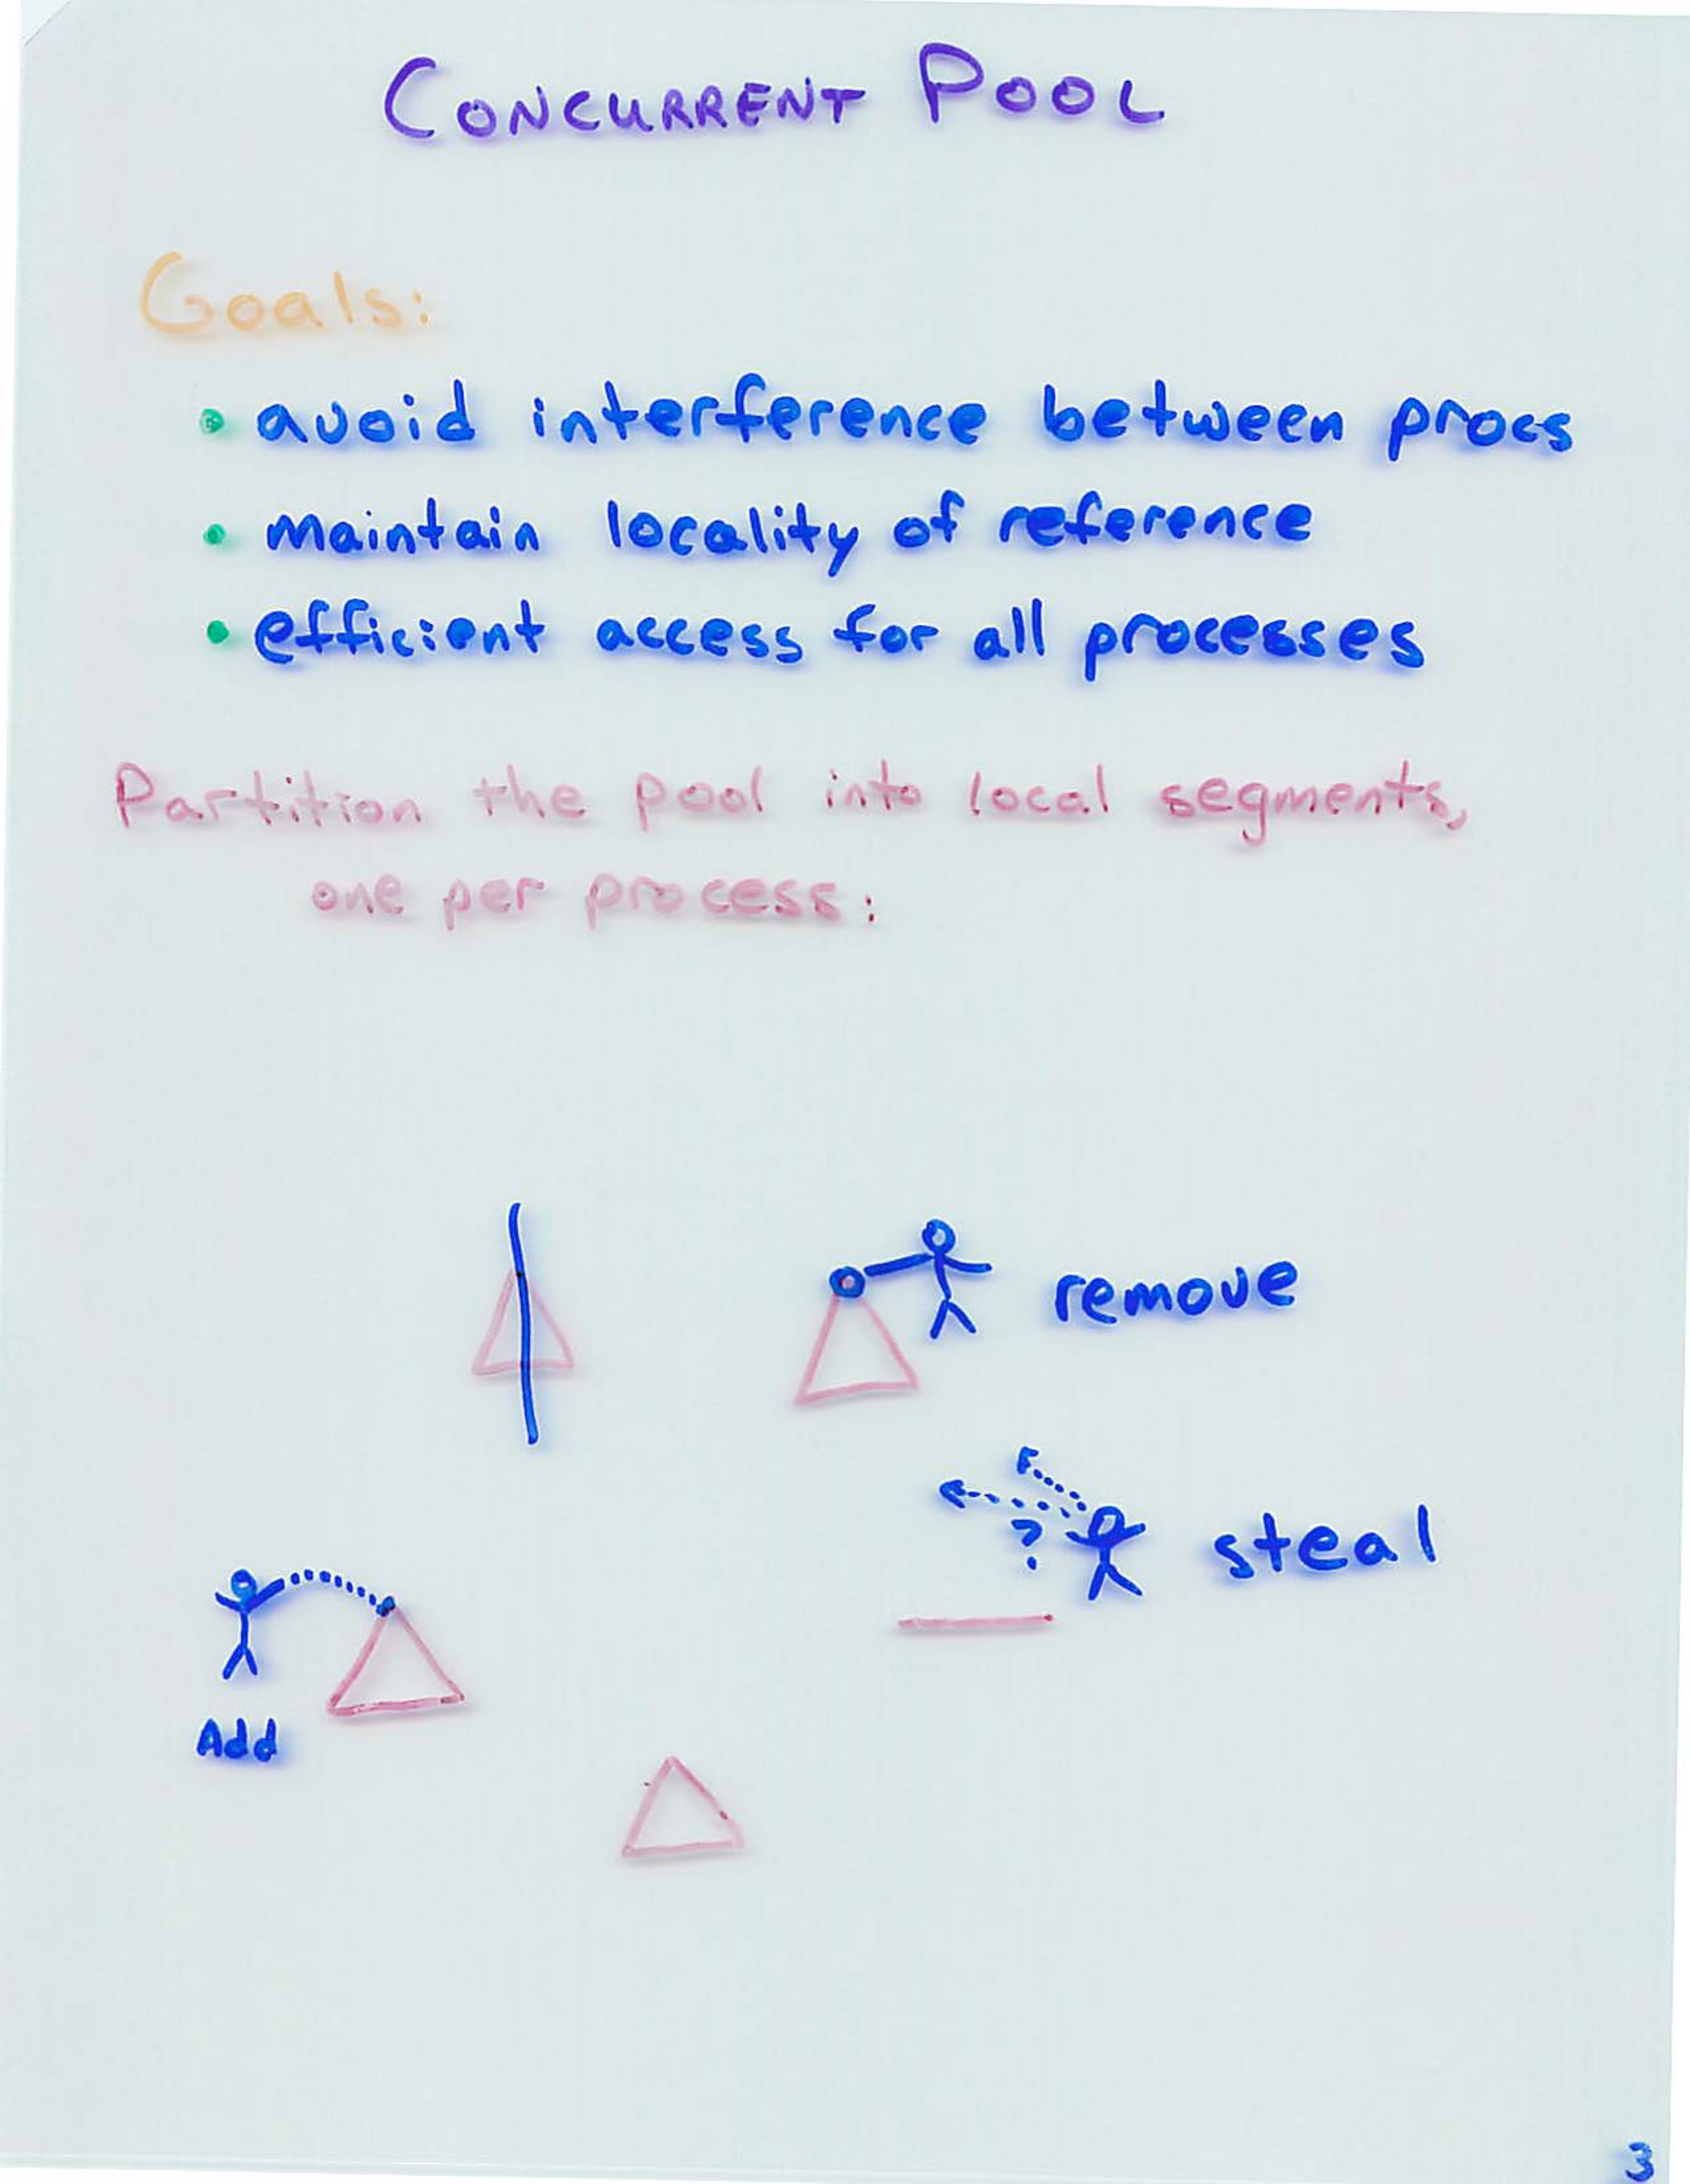 CONCURRENT POOL
Goals:
• avoid interference between procs
• maintain locality of reference
• efficient access for all processes
Partition the pool into local segments,
one per process:
remove
?
steal
Add
3